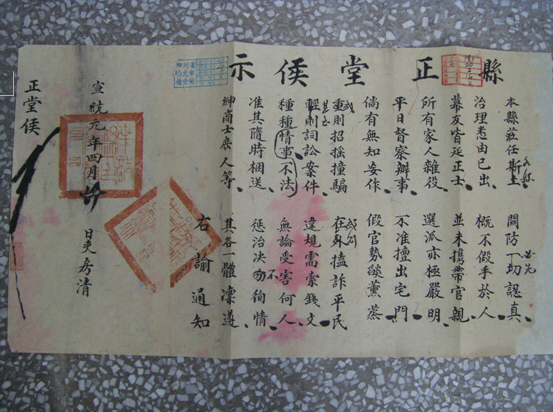 縣正堂侯示
本縣蒞任斯土 關防一切認真
治理悉由己出 概不假手於人
幕友皆延正士 並未攜帶官親
所有家人雜役 選派亦極嚴明
平日督察辦事 不准擅出宅門
倘有無知妄作 假官勢燄薰蒸
重則招搖撞騙 在外搕詐平民
輕則詞訟案件 違規需索錢文
種種情事不法 無論受害何人
准其隨時梱送 懲治決勿徇情
不
紳商士庶人等 其各一體凜遵
右諭通知
宣統元年四月 日吏房清
正堂侯